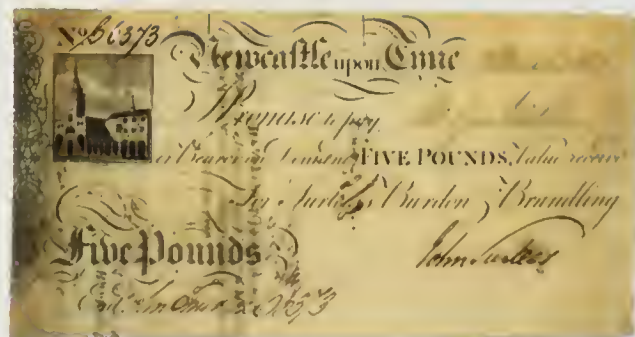 No B6373
Newcastle upon Tyne
I Promise to pay
or Bearer on Demand FIVE POUNDS, Value receiv
For Surtees Burdon & Brandling
Five Pounds
John Surtees